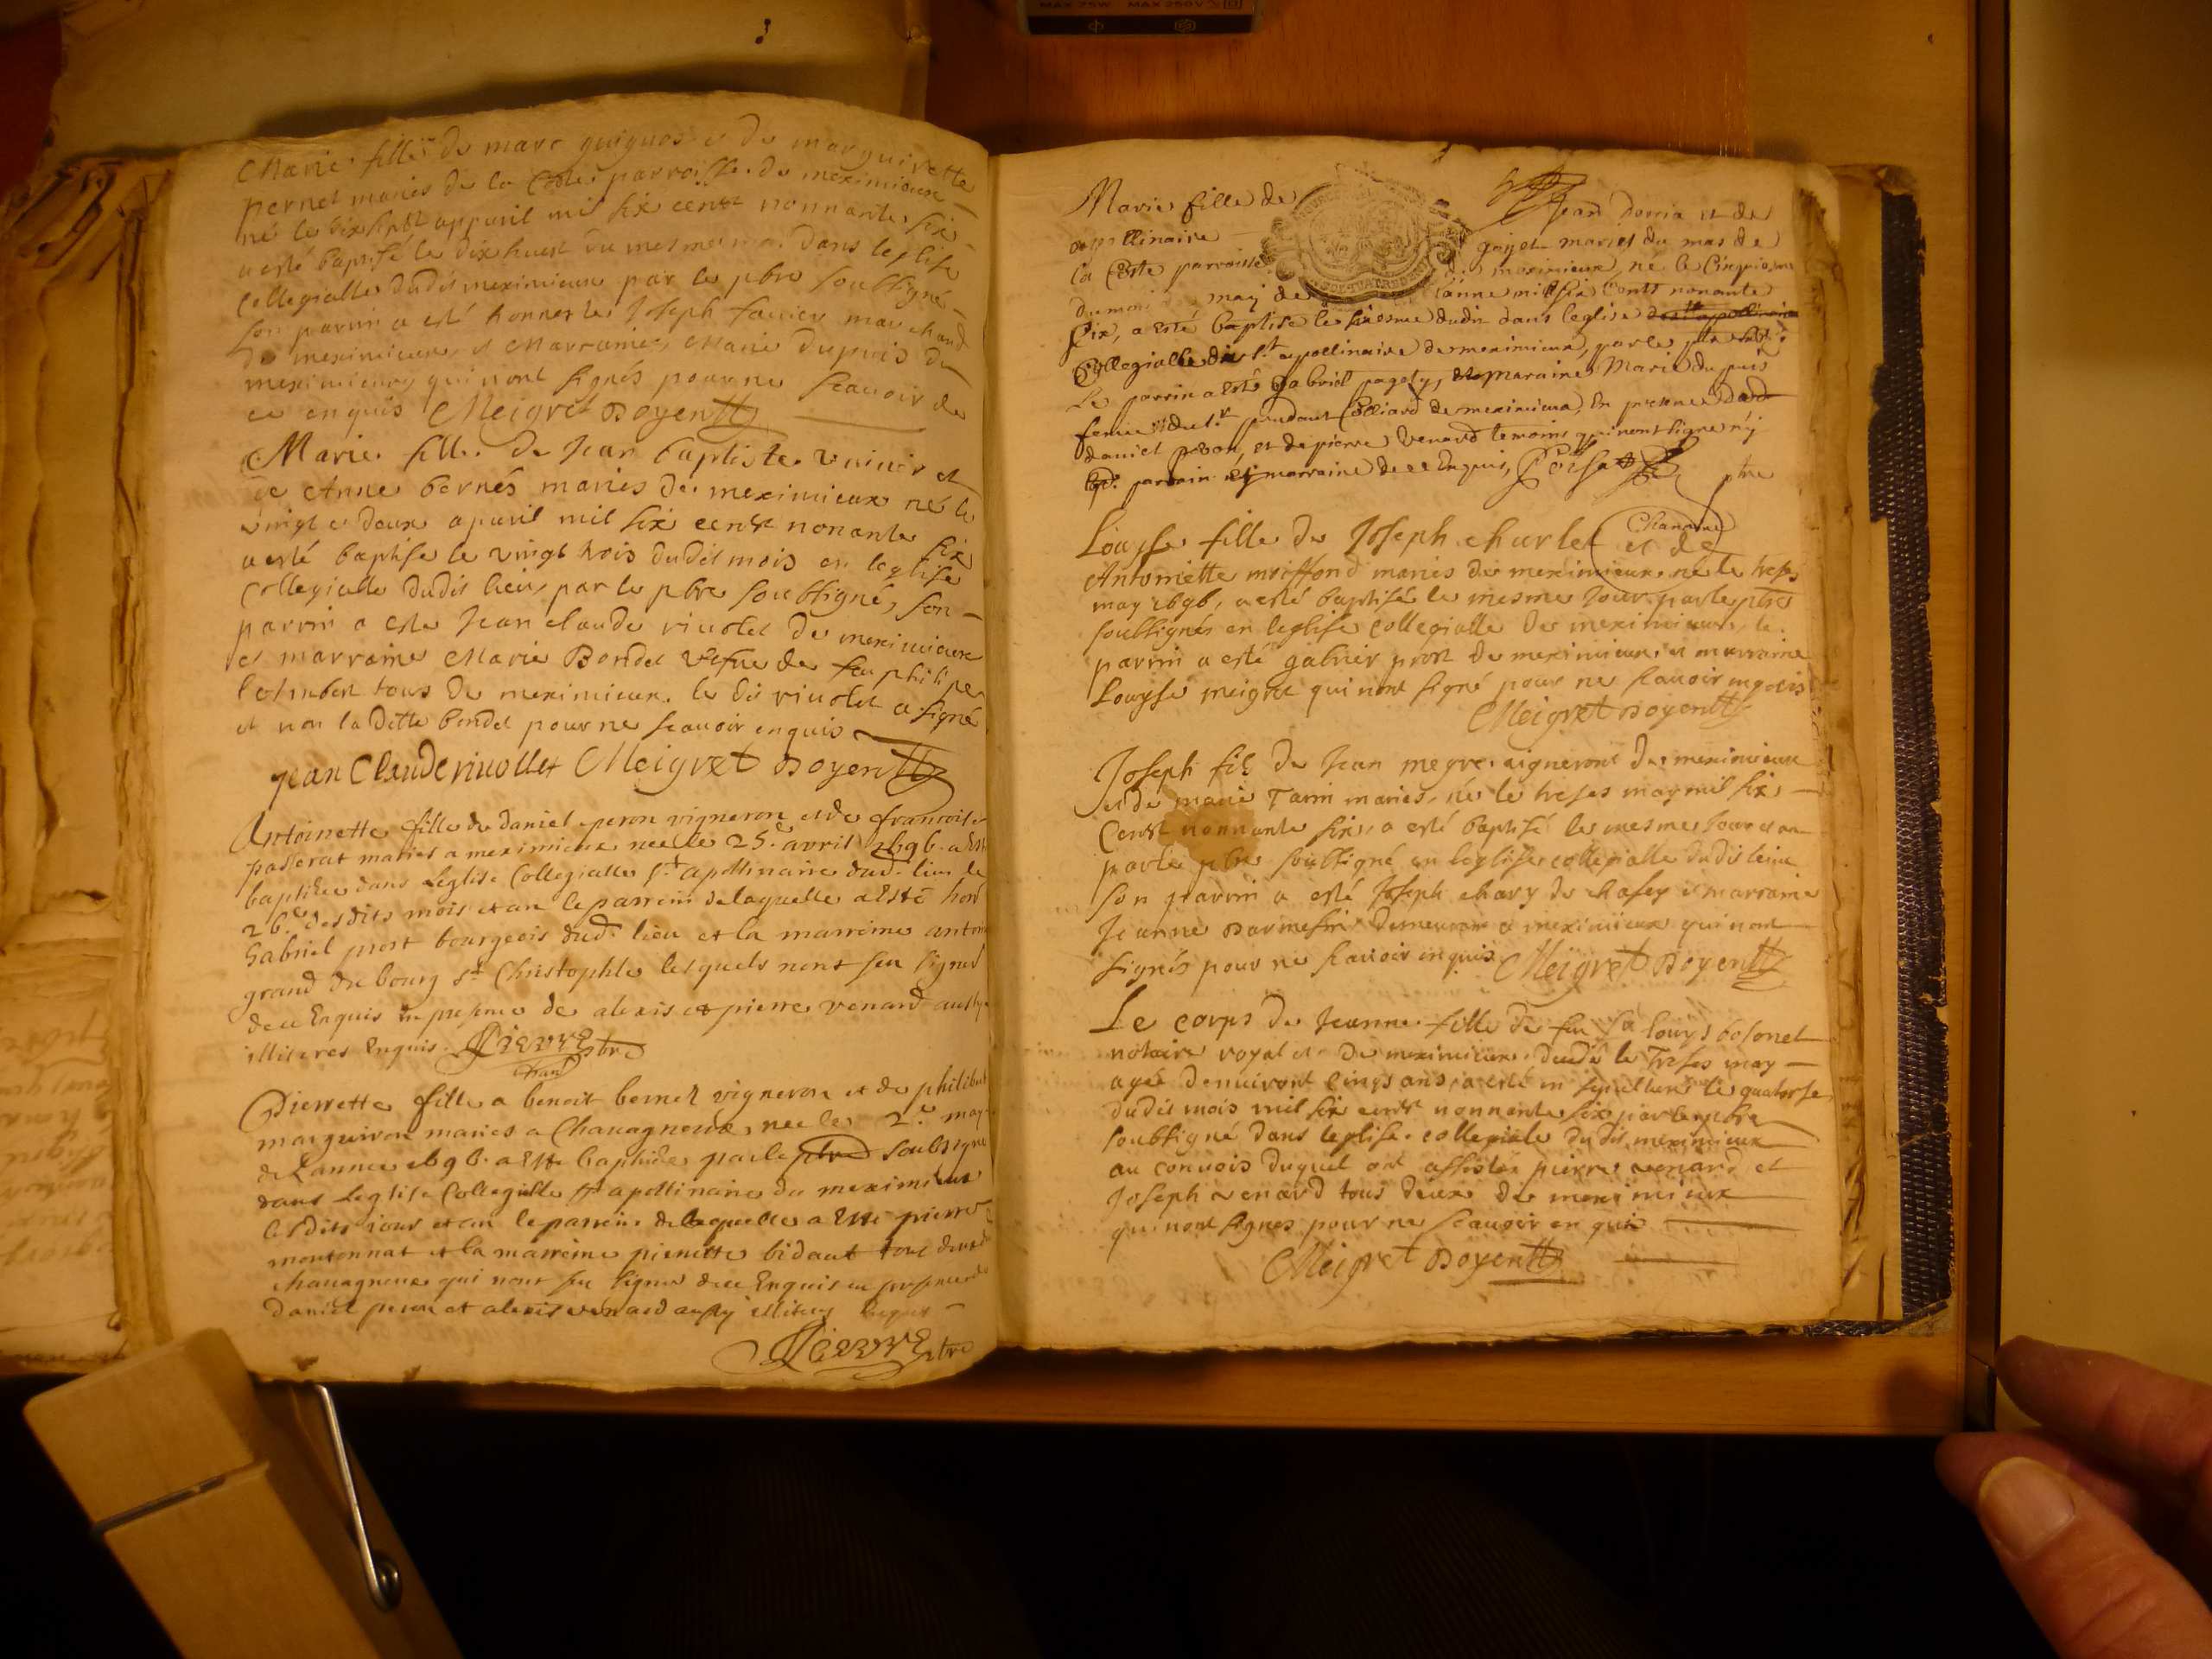 MAX 75W MAX 250V
Marie fille de marc guignos et de marguirette
pernet mariés de la Coste parroisse de meximieux
né le dix sept appuril mil six cent nonnante six
a esté baptisé le dix huit du mesme mois dans leglise
Collegialle dudit meximieux par le pbre soubsigné
son parrin a esté honneste Joseph favier marchand
de meximieux et Marraine Marie Dupuis de
meximieux qui nont signés pour ne scavoir de
ce enquis Meigret Doyen
Marie fille de Jean baptiste et
de Anne bernés mariés de meximieux né le
vingt et deux apuril mil six cent nonante six
a esté baptisé le vingt trois dudit mois en leglise
Collegialle dudit lieu, par le pbre soubsigné, son
parrin a esté Jean claude riuolet de meximieux
et marraine Marie Bondet vefue de feu philipe
Colmbet tous de meximieux. le dit riuolet a signé
et non la ditte bondet pour ne scauoir enquis
Jean Claude riuollet Meigret Doyen
Antoinette fille de daniel peron vigneron et de francoise
passerat mariés a meximieux née le 25e avril 1696. a esté
baptisée dans Leglise Collegialle St apollinaire dud. lieu le
26e desdits mois et an le parrein de laquelle a Esté hon
Gabriel prost bourgeois dud. lieu et la marreine antoin
grand de bourg st Christophle lesquels nont sceu signer
de ce Enquis En presence de alexis et pierre venard aussy
illiteres Enquis. pbre
Pierrette fille a benoit bernet vigneron et de philiber
marguiron mariés a Chauagneux, née le 2e may
de Lannée 1696. a Esté baptisée par le pbre soubsigné
dans Leglise Collegialle St apollinaire de meximieux
lesdits iour et an le parrein de laquelle a Esté pierre
montonnat et la marreine pierrette bidaut tous deux de
chauagneux qui nont sceu signer de ce Enquis en presence de
Daniel peron et alexis venard aussy illiteres Enquis
pbre
Marie fille de Jean dorria et de
apollinaire gayet mariés du mas de
la Coste parroisse de meximieux, né le Cinquiesme
du mois may de lanne mil six Cents nonante
Six, a esté baptisé le sixiesme dudit dans leglise
Collegialle de St apollinaire de meximieux, par le pbre
Le parrin a esté gabriel pagety, et maraine Marie du puis
femme du Sr Colliard de meximieux, En presence de
daniel peron, et de pierre Venard temoins qui nont signé ny
led. parrain ny marraine de ce Enquis, pbre
Chanoine
Louyse fille de Joseph charlet et de
Antoinette moiffond mariés de meximieux né le treze
may 1696, a esté baptisée le mesme Jour par le pbre
soubsigné en leglise collegialle de meximieux, le
parrin a esté gabriel prost de meximieux, et marraine
Louyse meigret qui nont signé pour ne scauoir enquis
Meigret Doyen
Joseph fils de Jean megre vigneront de meximieux
et de marie Tarin mariés, né le treses may mil six
Cent nonnante six, a esté baptisé le mesme Jour et an
par le pbre soubsigné en leglise collegialle dudit lieu
son parrin a esté Joseph chary de chasey et marraine
Jeanne Darmesin Demeurant a meximieux qui nont
signés pour ne scauoir enquis Meigret Doyen
Le corps de Jeanne fille de feu Sr Louys bolonet
notaire royal de meximieux decedé le Treses may
agée denuiront cinqs ans, a esté en sepulture le quatorse
dudit mois mil six cent nonnante six par le pbre
soubsigné dans leglise collegiale dudit meximieux
au conuois duquel ont assistés pierre venard et
Joseph venard tous deux de meximieux
qui nont signés pour ne scauoir en quis
Meigret Doyen